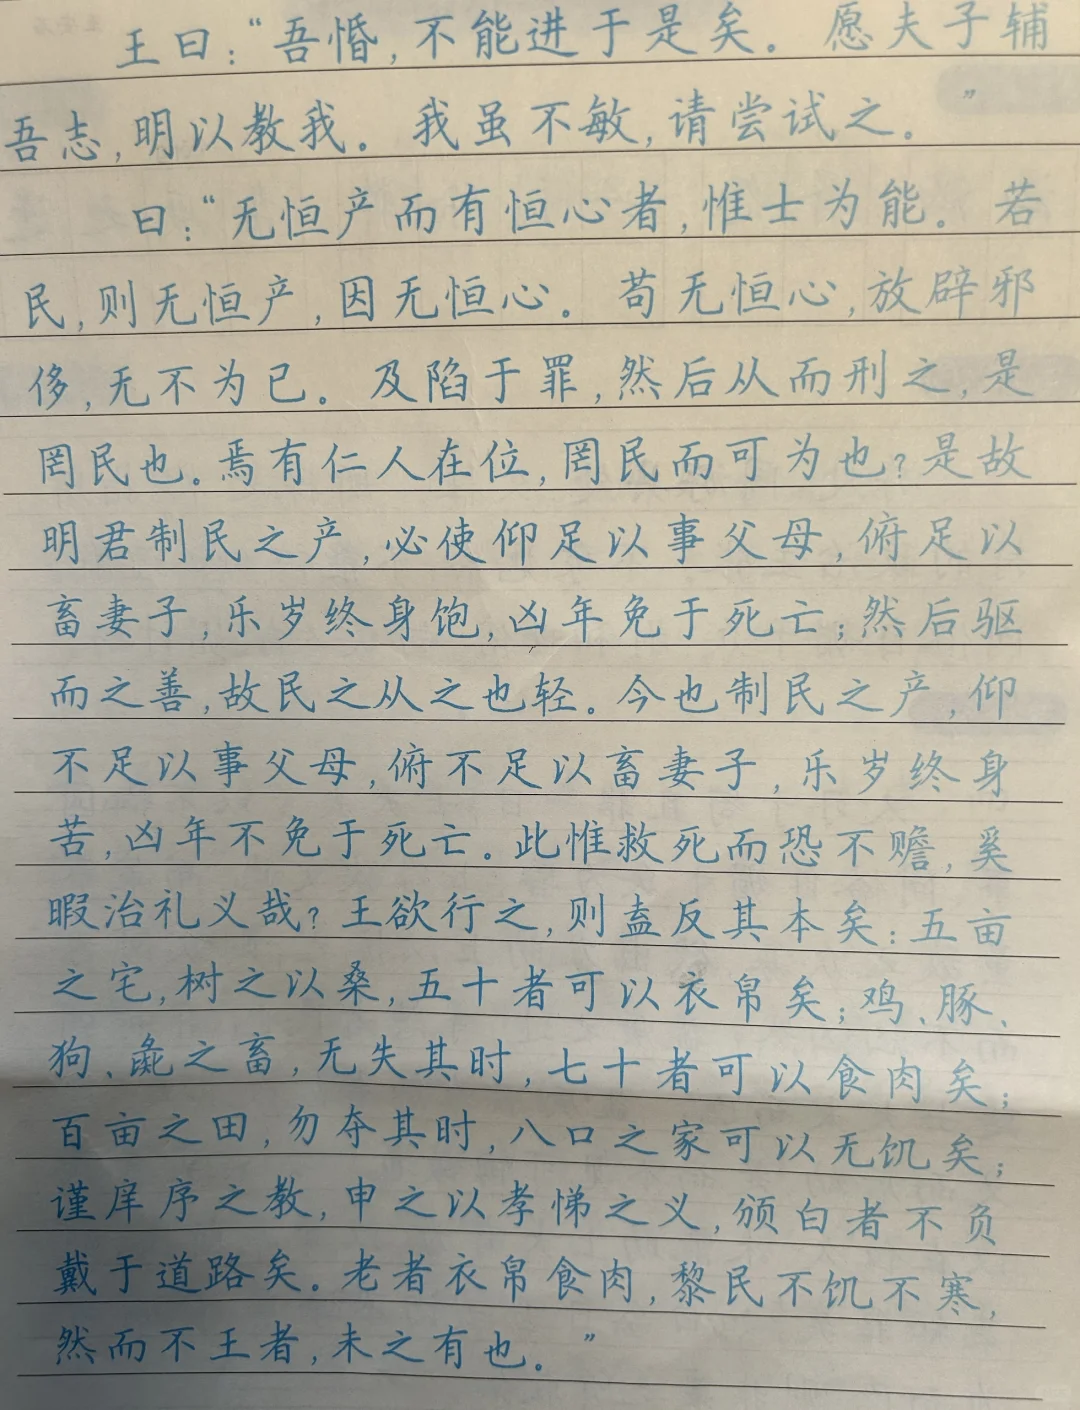 王曰：“吾惛，不能进于是矣。愿夫子辅
吾志，明以教我。我虽不敏，请尝试之。”
曰：“无恒产而有恒心者，惟士为能。若
民，则无恒产，因无恒心。苟无恒心，放辟邪
侈，无不为已。及陷于罪，然后从而刑之，是
罔民也。焉有仁人在位，罔民而可为也？是故
明君制民之产，必使仰足以事父母，俯足以
畜妻子，乐岁终身饱，凶年免于死亡；然后驱
而之善，故民之从之也轻。今也制民之产，仰
不足以事父母，俯不足以畜妻子，乐岁终身
苦，凶年不免于死亡。此惟救死而恐不赡，奚
暇治礼义哉？王欲行之，则盍反其本矣：五亩
之宅，树之以桑，五十者可以衣帛矣；鸡、豚、
狗、彘之畜，无失其时，七十者可以食肉矣；
百亩之田，勿夺其时，八口之家可以无饥矣；
谨庠序之教，申之以孝悌之义，颁白者不负
戴于道路矣。老者衣帛食肉，黎民不饥不寒，
然而不王者，未之有也。”